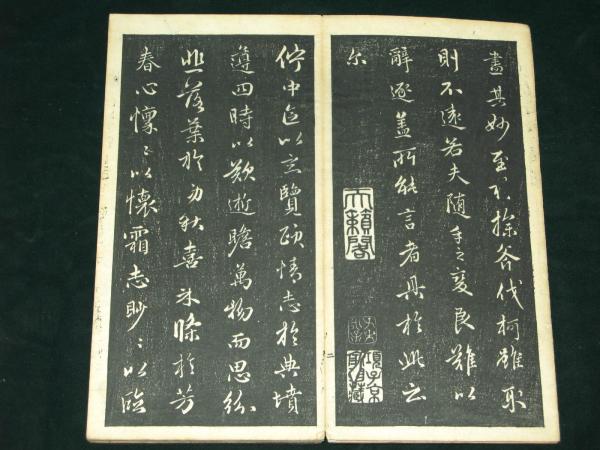 盡其妙至於操斧伐柯雖取
則不遠若夫隨手之變良難以
辭逐蓋所能言者具於此云
尔
天籟閣
項子京家珍藏
佇中區以玄覽頤情志於典墳
遵四時以歎逝瞻萬物而思紛
悲落葉於勁秋喜柔條於芳
春心懍〻以懷霜志眇〻以臨